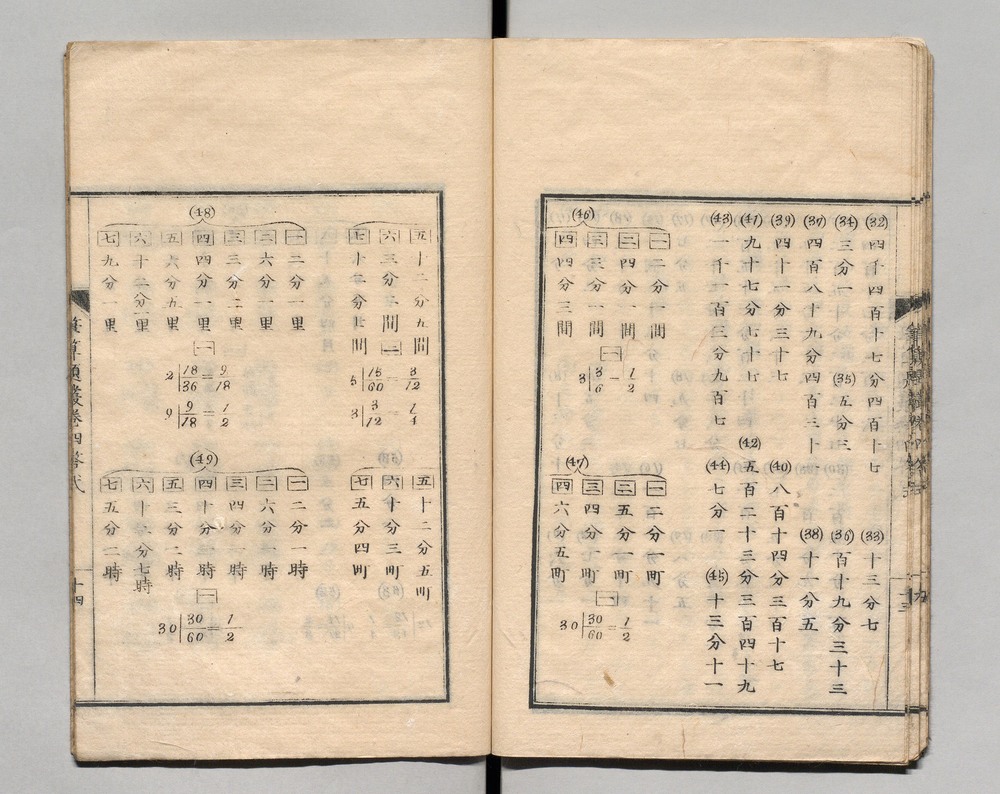 (32) 四千四百十七分四百十七
(33) 十三分七
(34) 三分一
(35) 五分三
(36) 百十九分三十三
(37) 四百八十九分四百三十
(38) 十一分五
(39) 四十一分三十七
(40) 八百十四分三百十七
(41) 九十七分七十七
(42) 五百二十三分三百四十九
(43) 一千一百三分九百七
(44) 七分一
(45) 十三分十一
(46)
一 二分一間
二 四分一間
三 三分一間
四 四分三間
一
3|3/6=1/2
(47)
一 二分一町
二 五分一町
三 四分一町
四 六分五町
一
30|30/60=1/2
五 十二分五間
六 三分二間
七 十二分七間
二
5|15/60=3/12
3|3/12=1/4
五 十二分五町
六 十分三町
七 五分四町
(48)
一 二分一里
二 六分一里
三 三分二里
四 四分一里
五 六分五里
六 十二分一里
七 九分一里
一
2|18/36=9/18
9|9/18=1/2
(49)
一 二分一時
二 六分一時
三 四分一時
四 十分一時
五 三分二時
六 十二分七時
七 五分二時
一
30|30/60=1/2
筆算題叢卷四答式
十四